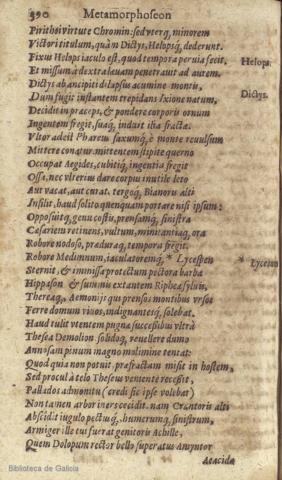 390 Metamorphoseon
Pirithoi virtute Chromin: sed vterq, minorem
Victori titulum, quàm Dictys, Helopsq́, dederunt.
Fixus Helops iaculo est, quod tempora peruia fecit,
Helops.
Et missum à dextra lauam penetrauit ad aurem.
Dictys ab ancipiti delapsus acumine montis,
Dictys.
Dum fugit instantem trepidans Ixione natum,
Decidit in præceps, & pondere corporis ornum
Ingentem fregit, suaq́, induit ilia fracta.
Vltor adest Phareus saxumq́, è monte reuulsum
Mittere conatur. mittentem stipite querno
Occupat Aegides, cubitiq́, ingentia fregit
Ossa, nec vlterius dare corpus inutile leto
Aut vacat, aut curat. tergoq́, Bianoris alti
Insilit, haud solito quenquam portare nisi ipsum:
Opposuitq, genu costis, prensamq́, sinistra
Cæsariem retinens, vultum, minitantiaq́, ora
Robore nodoso, præduraq́, tempora fregit.
Robore Medimnum, iaculatoremq́, * Lycespen
* Lycoten
Sternit, & immissa protectum pectora barba
Hippason & summis extantem Riphea syluis,
Thereaq́,, Aemonijs qui prensos montibus vrsos
Ferre domum viuos, indignantesq́, solebat.
Haud tulit vtentem pugnæ successibus vltrà
Thesea Demoleon. solidoq́, reuellere dumo
Annosam pinum magno molimine tentat:
Quod quia non potuit, præfractam misit in hostem,
Sed procul à telo Theseus veniente recessit,
Pallados admonitu (credi sic ipse volebat)
Non tamen arbor iners cecidit. nam Crantoris alti
Abscidit iugulo pectusq́, humerumq́, sinistrum,
Armiger ille tui fuerat genitoris Achille,
Quem Dolopum rector bello superatus Amyntor
Aeacidæ
Biblioteca de Galicia